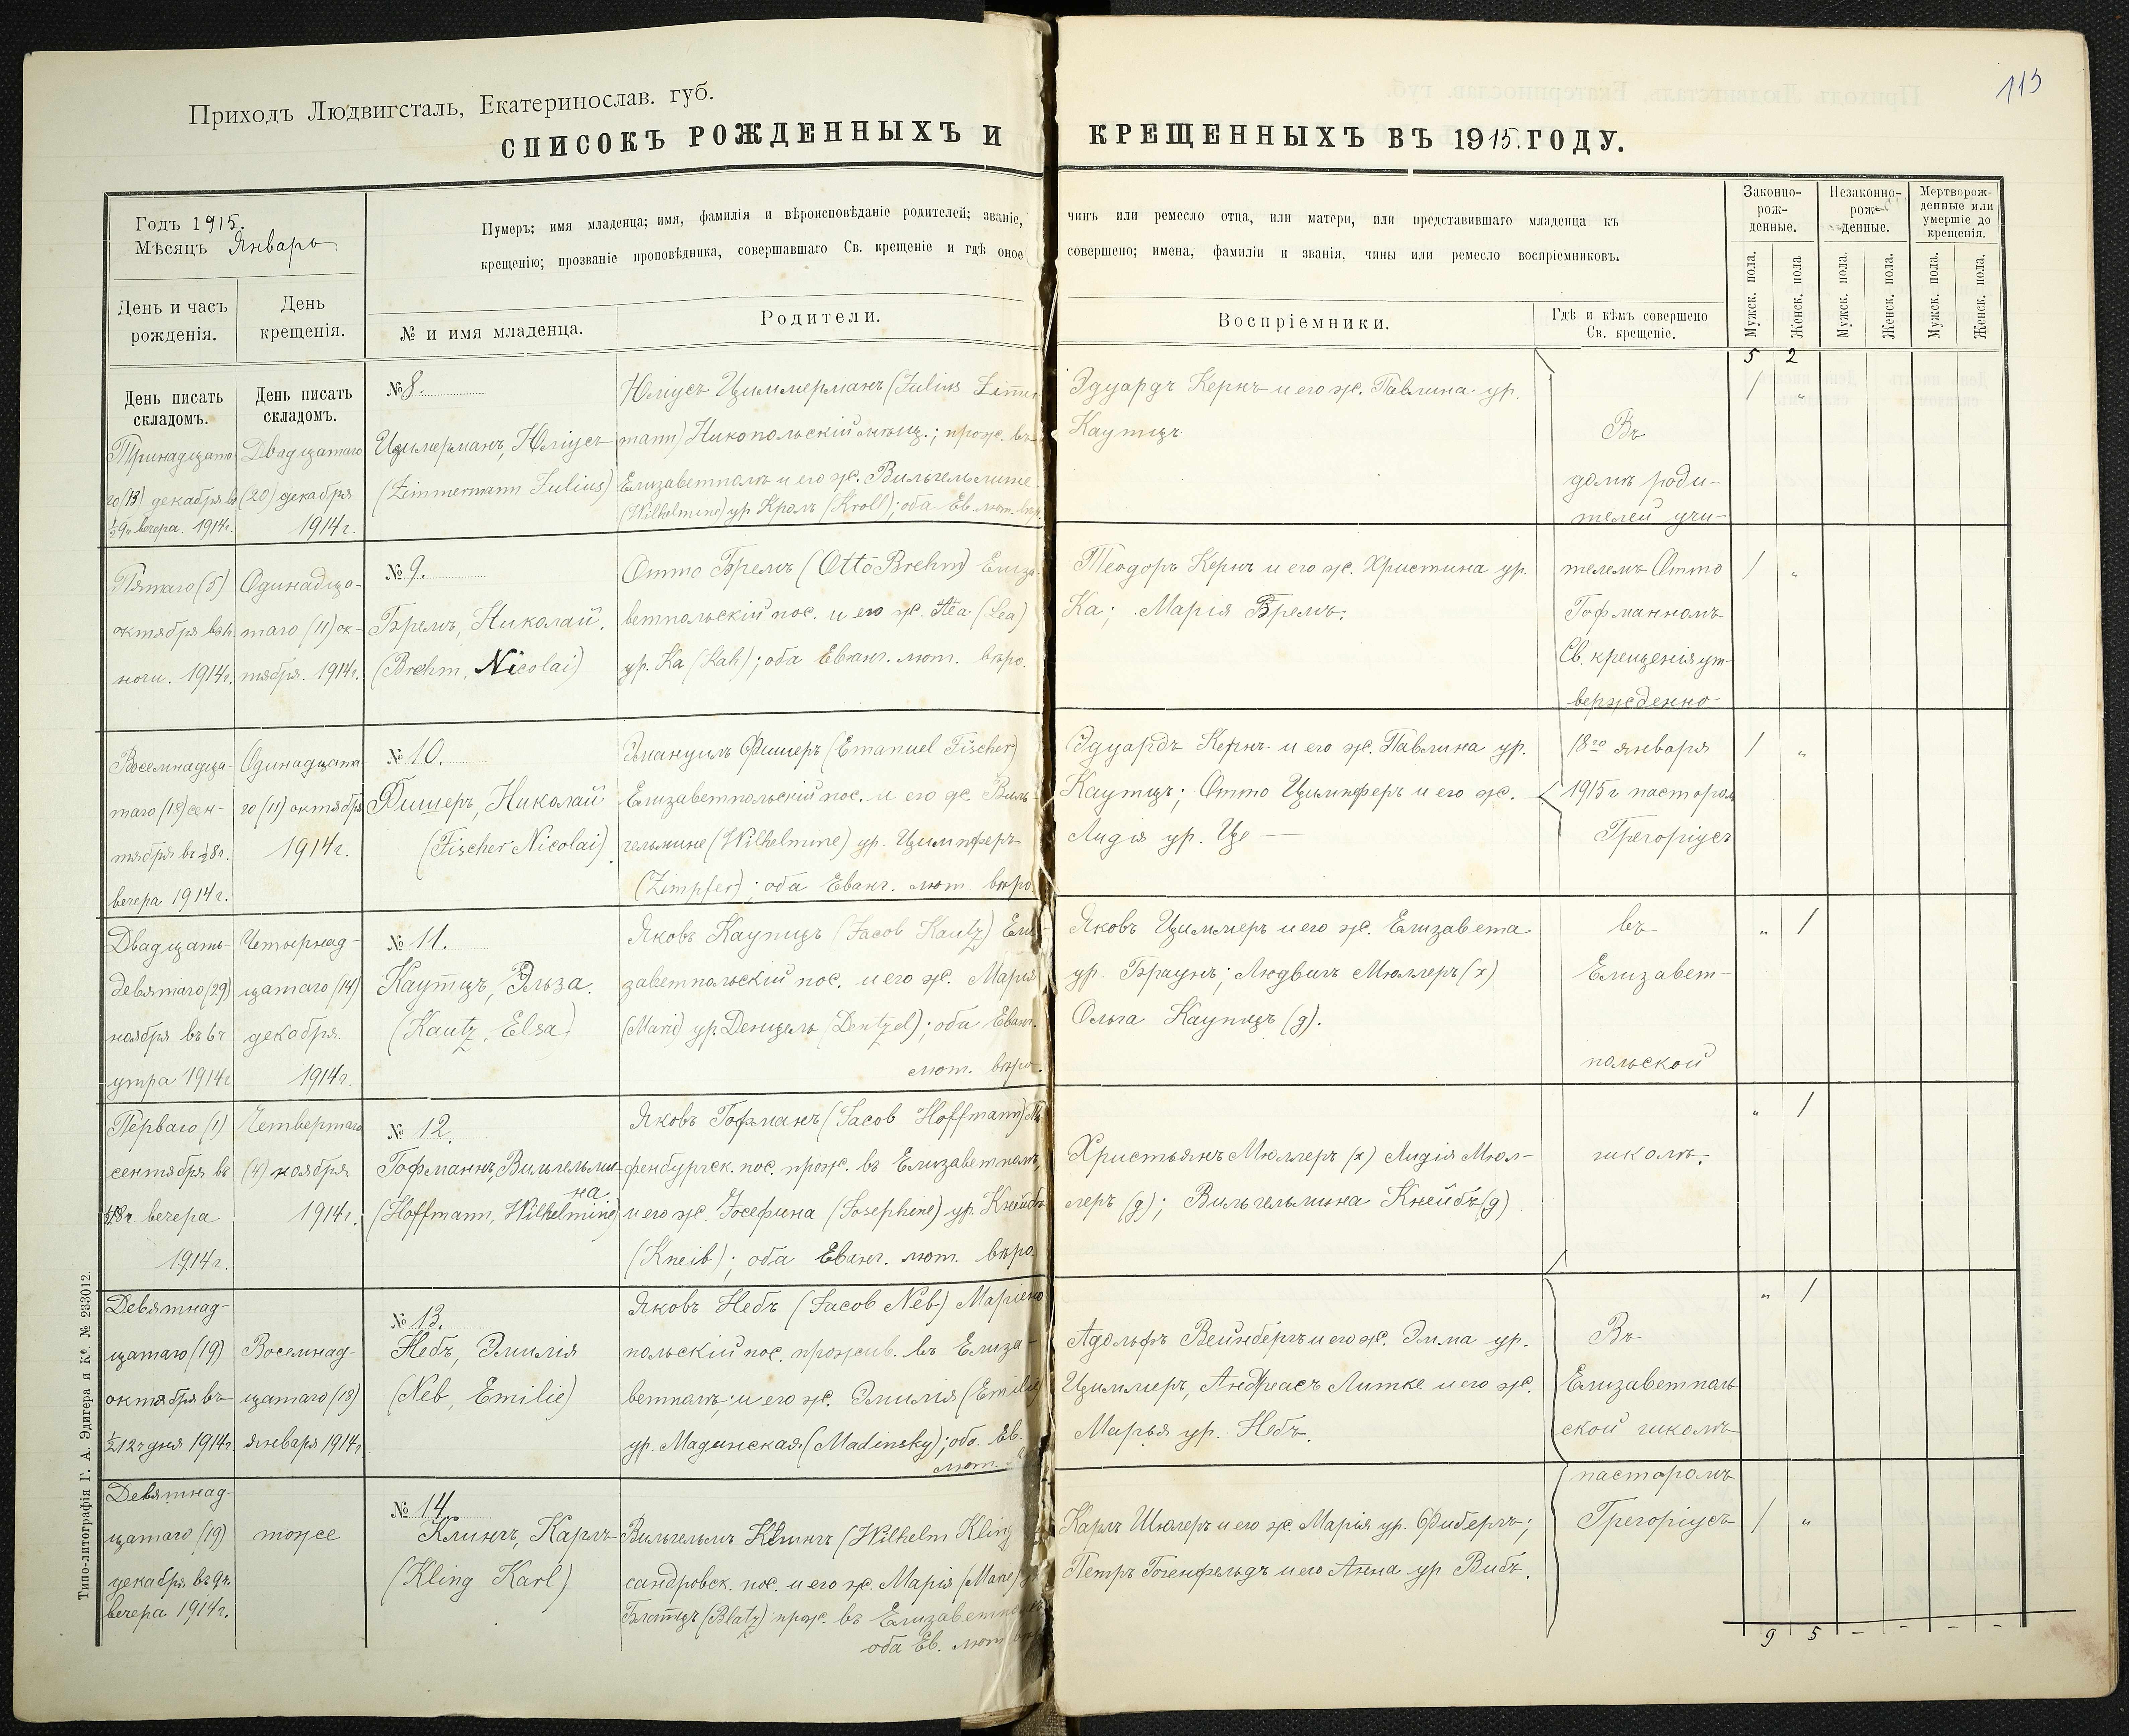 115
Приходъ Людвигсталь, Екатеринослав. губ.
СПИСОКЪ РОЖДЕННЫХЪ И КРЕЩЕННЫХЪ ВЪ 1915. ГОДУ.
Годъ 1915.
Мѣсяцъ Январь
Нумеръ; имя младенца; имя, фамилія и вѣроисповѣданіе родителей; званіе, чинъ или ремесло отца, или матери, или представившаго младенца къ
крещенію; прозваніе проповѣдника, совершавшаго Св. крещеніе и гдѣ оное совершено; имена, фамиліи и званія, чины или ремесло воспріемниковъ.
Законно-
рож-
денные.
Незаконно-
рож-
денные.
Мертворож-
денные или
умершіе до
крещенія.
День и часъ
рожденія.
День
крещенія.
№ и имя младенца.
Родители.
Воспріемники.
Гдѣ и кѣмъ совершено
Св. крещеніе.
Мужск. пола.
Женск. пола
Мужск. пола.
Женск. пола.
Мужск. пола.
Женск. пола.
5 2
День писать
складомъ.
Тринадцата-
го (13) декабря въ
½9ч вечера. 1914г.
День писать
складомъ.
Двадцатаго
(20) декабря
1914г.
№ 8.
Циммерманъ, Юліусъ
(Zimmermann Julius)
Юліусъ Циммерманъ (Julius Zimmer
mann) Никопольскій мѣщ.; прож. въ
Елизаветполѣ и его ж. Вильгельмине
(Wilhelmine) ур Кролъ (Kroll); оба Ев. лют. вѣр.
Эдуардъ Кернъ и его ж. Павлина ур.
Каутцъ
Въ
домѣ роди-
телей учи-
1 „
Пятаго (5)
октября въ
ночи. 1914г.
Одинадца-
таго (11) ок-
тября. 1914г.
№ 9.
Бремъ, Николай.
(Brehm, Nicolai)
Отто Бремъ (Otto Brehm) Елиза-
ветпольскій пос. и его ж. Леа (Lea)
ур. Ка (Kah); оба Еванг. лют. вѣро.
Теодоръ Кернъ и его ж. Христина ур.
Ка; Марія Бремъ.
телемъ Отто
Гофманномъ
Св. крещенія ут-
верждено
1 „
Восемнадца-
таго (18) сен-
тября въ ½8ч.
вечера 1914г.
Одинадцата-
го (11) октября
1914г.
№ 10.
Фишеръ, Николай
(Fischer Nicolai)
Эмануилъ Фишеръ (Emanuel Fischer)
Елизаветпольскій пос. и его ж. Виль-
гельмине (Wilhelmine) ур. Цимпферъ
(Zimpfer); оба Еванг. лют. вѣро
Эдуардъ Кернъ и его ж. Павлина ур.
Каутцъ; Отто Цимпферъ и его ж.
Лидія ур. Це
18го января
1915г пасторомъ
Грегоріусъ
1 „
Двадцать-
девятаго (29)
ноября въ 6ч
утра 1914г
Четырнад-
цатаго (14)
декабря.
1914г.
№ 11.
Каутцъ, Эльза.
(Kautz, Elsa)
Яковъ Каутцъ (Jacob Kautz) Ели-
заветпольскій пос. и его ж. Марія
(Marie) ур Денцель (Dentzel); оба Еванг.
лют. вѣро.
Яковъ Циммеръ и его ж. Елизавета
ур. Браунъ; Людвигъ Мюллеръ (х)
Ольга Каутцъ (д).
въ
Елизавет-
польской
„ 1
Перваго (1)
сентября въ
8ч вечера
1914г.
Четвертаго
(4) ноября
1914г.
№ 12.
Гофманнъ, Вильгельми-
на.
(Hoffmann, Wilhelmine)
Яковъ Гофманъ (Jacob Hoffmann)
фенбургск. пос. прож. въ Елизаветполѣ,
и его ж. Іосефина (Josephine) ур. Кнейбъ
(Kneib); оба Еванг. лют. вѣро.
Христьянъ Мюллеръ (х) Лидія Мюл-
леръ (д); Вильгельмина Кнейбъ (д)
школѣ.
„ 1
Девятнад-
цатаго (19)
октября въ
½12ч дня 1914г.
Восемнад-
цатаго (18)
января 1914г
№ 13.
Небъ, Эмилія
(Neb, Emilie)
Яковъ Небъ (Jacob Neb) Маріено-
польскій пос. прожив. въ Елиза-
ветполѣ; и его ж. Эмилія (Emilie)
ур. Мадинская (Madinsky); об. Ев.
лют.
Адольфъ Вейнбергъ и его ж. Эмма ур.
Циммеръ, Андреасъ Литке и его ж.
Марья ур. Небъ.
Въ
Елизаветполь
ской школѣ
„ 1
Девятнад-
цатаго (19)
декабря въ 9ч.
вечера 1914г.
тоже
№ 14.
Клингъ, Карлъ
(Kling Karl)
Вильгельмъ Клингъ (Wilhelm Kling
сандровск. пос. и его ж. Марія (Marie)
Блатцъ (Blatz) прож. въ Елизаветполѣ
оба Ев. лют
Карлъ Шюлеръ и его ж. Марія ур. Фибергъ;
Петръ Гогенфельдъ и его Анна ур Вибъ.
пасторомъ
Грегоріусъ
1 „
9 5 - - - -
Типо-литографія Г. А. Эдигера и Ко. № 233012.